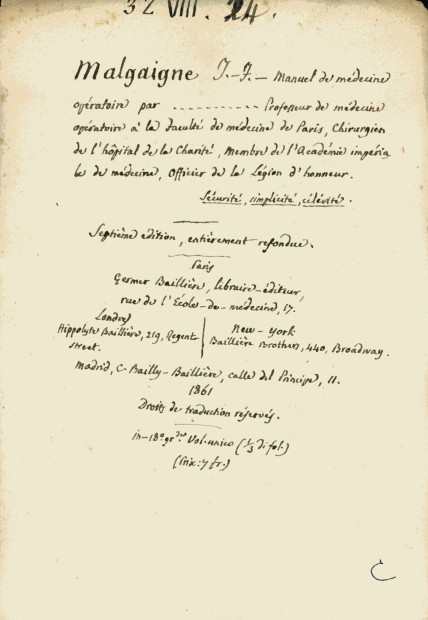 32 VIII. 24.
Malgaigne J.-F. — Manuel de médecine
opératoire par ----------- Professeur de médecine
opératoire à la faculté de médecine de Paris, Chirurgien
de l'hôpital de la Charité, Membre de l'Académie impéria
le de médecine, Officier de la Légion d'honneur.
Sécurité, simplicité, célévité.
Septième édition, entièrement refondue.
Paris
Germer Baillière, libraire-éditeur,
rue de l'École-de-médecine, 17.
Londres
Hippolyte Baillière, 219, Regent
street.
New-york
Baillière Brothers, 440, Broadway.
Madrid, C. Bailly-Baillière, calle del Principe, 11.
1861
Droits de traduction réservés.
in-18º gr. Vol. unico (1/3 di fol.)
(Prix: 7 fr.)
C